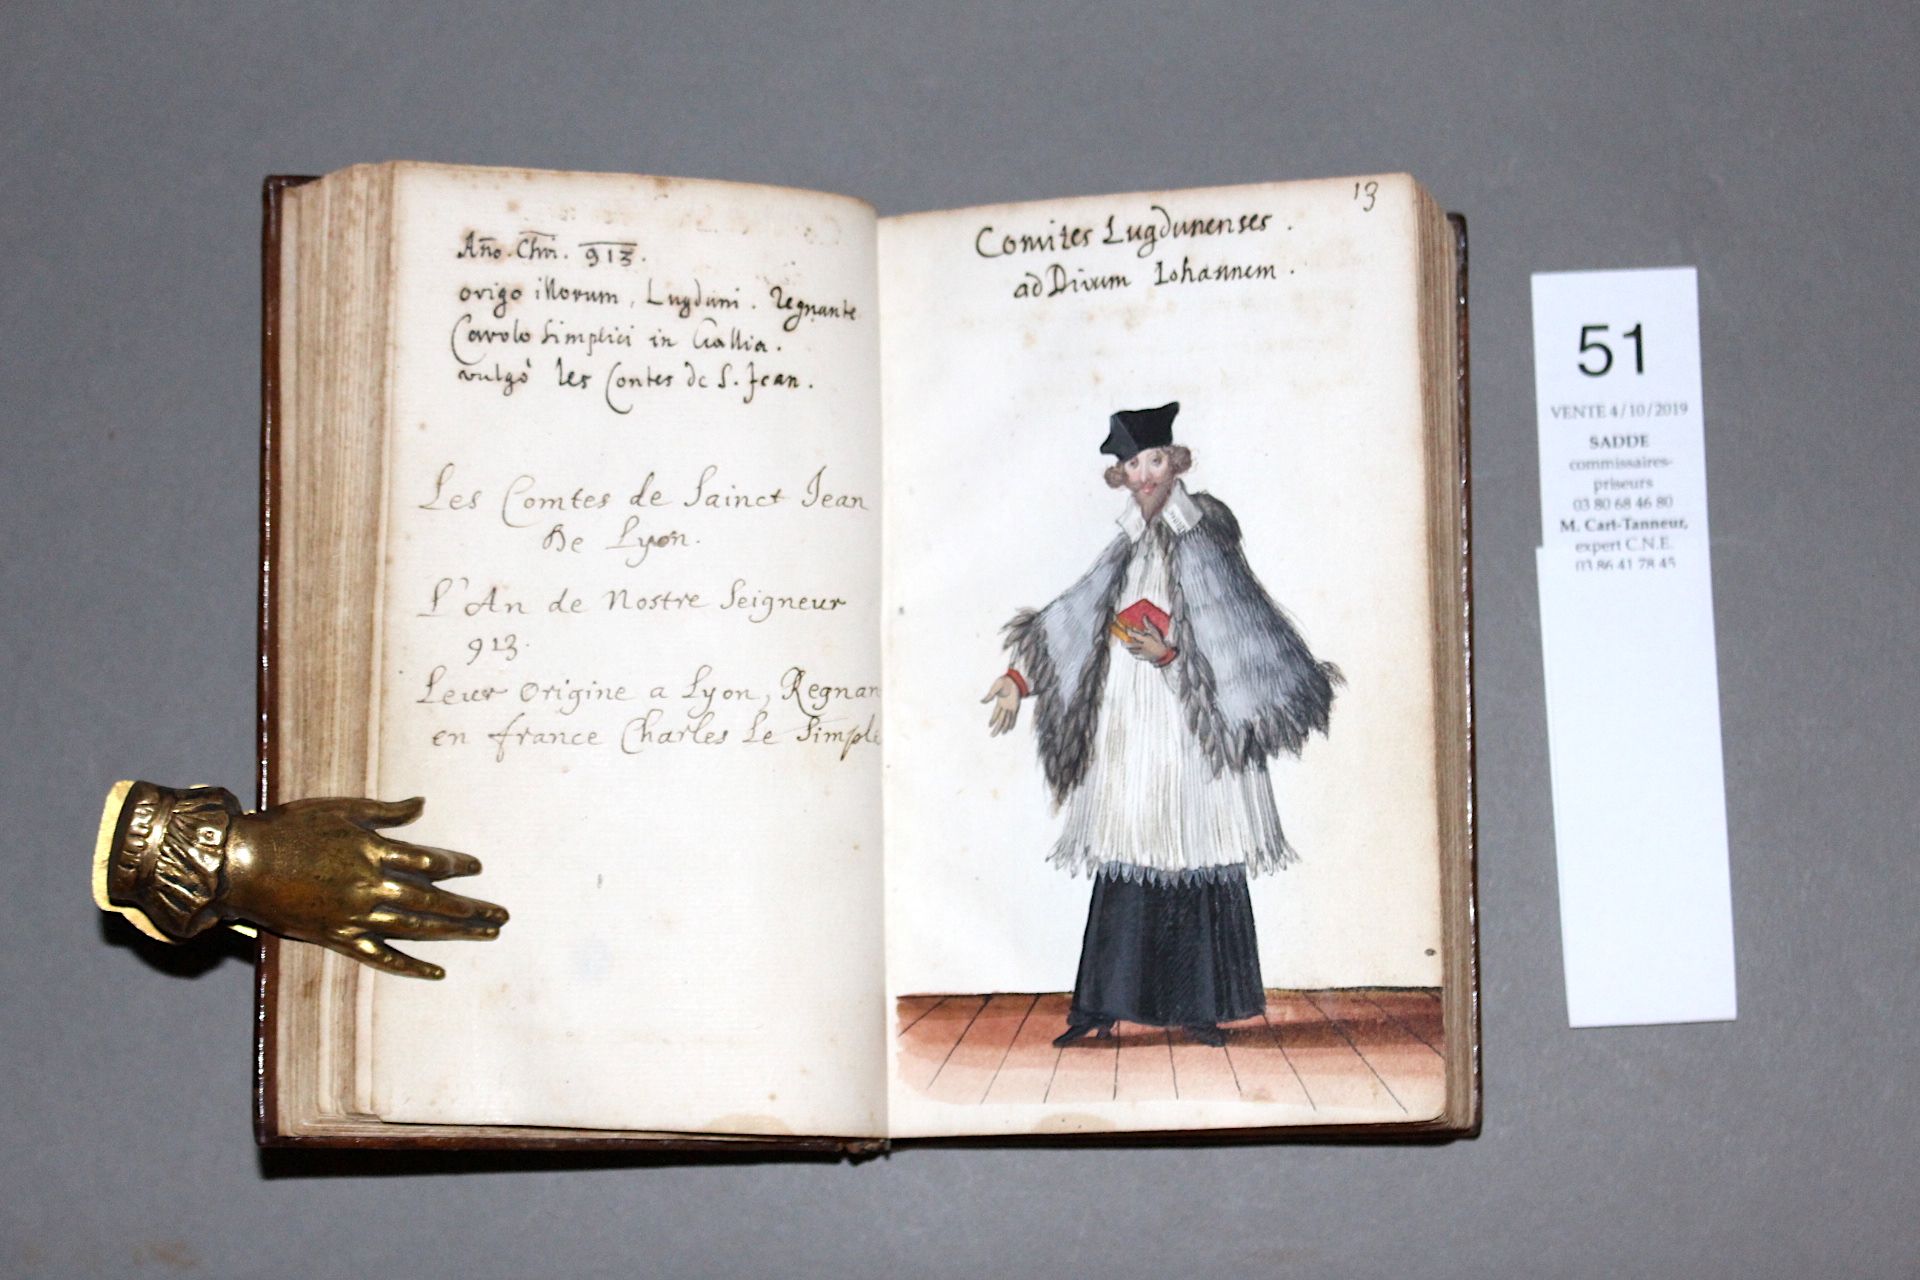 Año. Chri. 913.
origo illorum, Lugduni. Regnante
Carolo Simplici in Gallia.
vulgò les Contes de S. Jean.
Les Comtes de Sainct Jean
De Lyon.
L'An de Nostre Seigneur
913.
Leur Origine a Lyon, Regnan
en france Charles Le Simpli
13
Comites Lugdunenses.
ad Divum Iohannem.
51
VENTE 4/10/2019
SADDE
commissaires-
priseurs
03 80 68 46 80
M. Carl-Tanneur,
expert C.N.E.
03 86 41 78 45